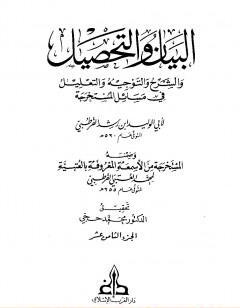 البيان والتحصيل
والشرح والتوجيه والتعليل
في مسائل المستخرجة
لأبي الوليد ابن رشد القرطبي
المتوفى عام ٥٢٠ هـ
وضمنه
المستخرجة من الأسمعة المعروفة بالعتبية
لمحمد العتبي القرطبي
المتوفى عام ٢٥٥ هـ
تحقيق
الدكتور محمد حجي
الجزء الثامن عشر
دار الغرب الإسلامي